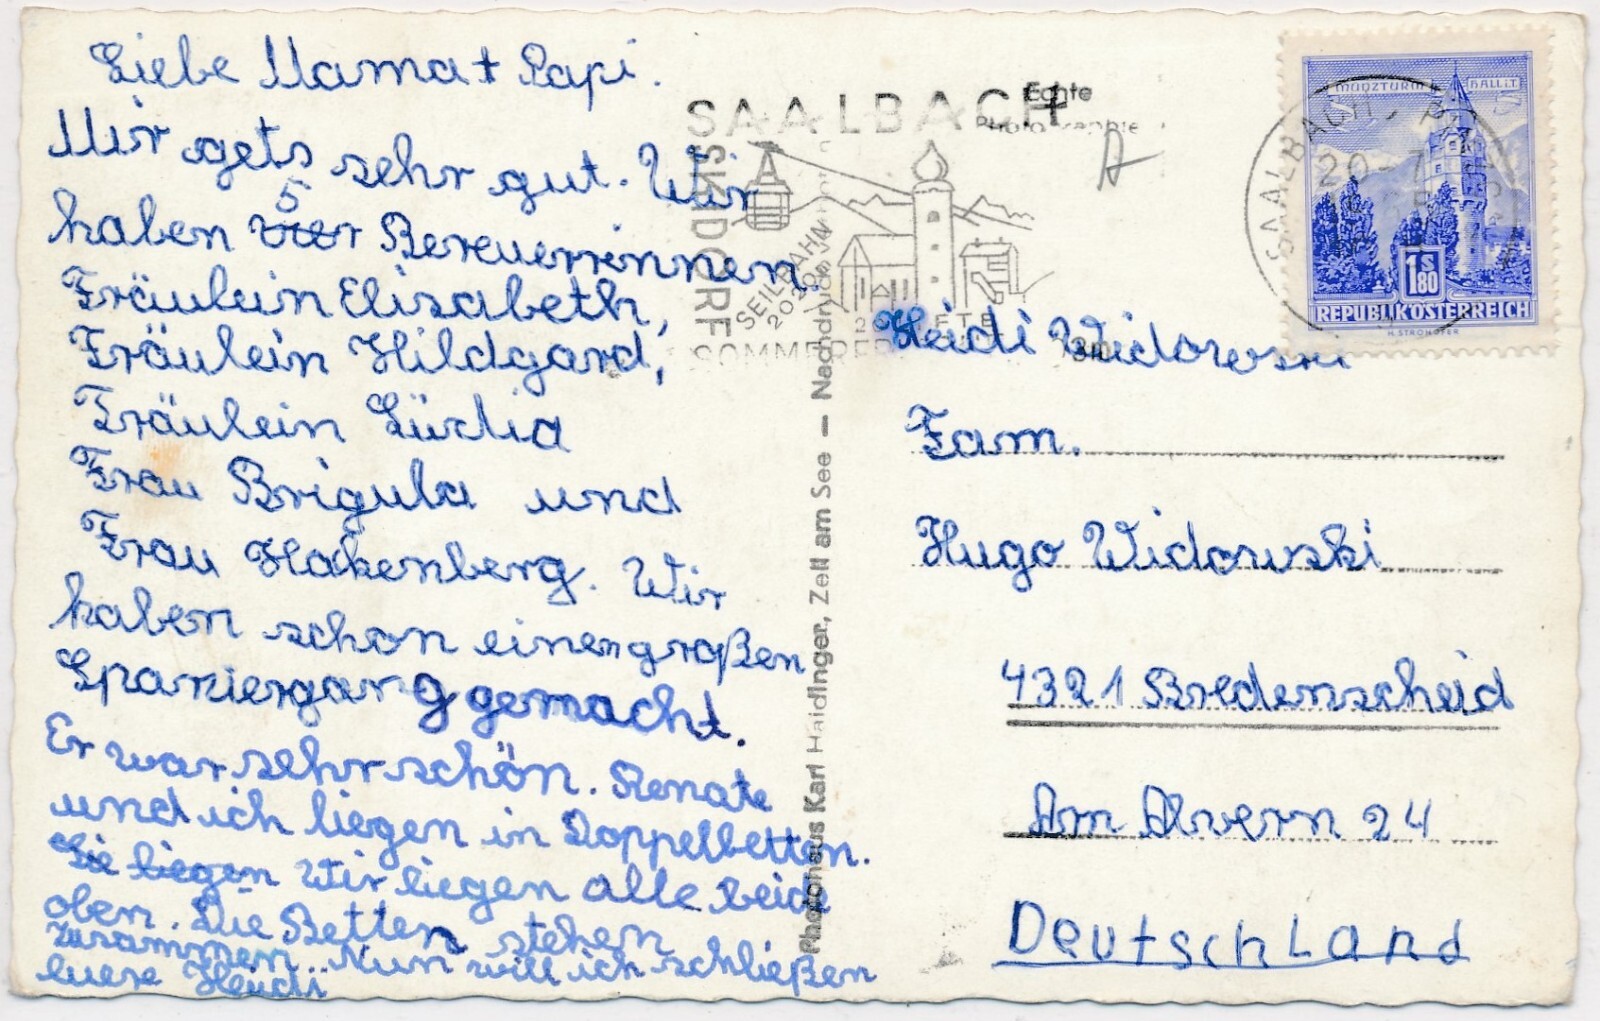 Liebe Mama + Papi.
Mir gets sehr gut. Wir
haben 5 Bereuerrinnen.
Fräulein Elisabeth,
Fräulein Hildgard,
Fräulein Lürlia
Frau Brigula und
Frau Hakenberg. Wir
haben schon einen großen
Spaniergang gemacht.
Er war sehr schön. Renate
und ich liegen in Doppelbetten.
Sie liegen Wir liegen alle beide
oben. Die Betten stehen
zusammen. Nun will ich schließen
euere Heidi
SAALBACH
SKIDORF
SEILBAHN
2020 m
SOMMER
Echte
Photographie
Photohaus Karl Haidinger, Zell am See — Nachdruck
SAALBACH
20.-7
MÜNZTURM HALL i.T.
1 S 80
REPUBLIK ÖSTERREICH
H. STROHOFER
Heidi Widowski
Fam.
Hugo Widowski
4321 Bredenscheid
Am Alvern 24
Deutschland